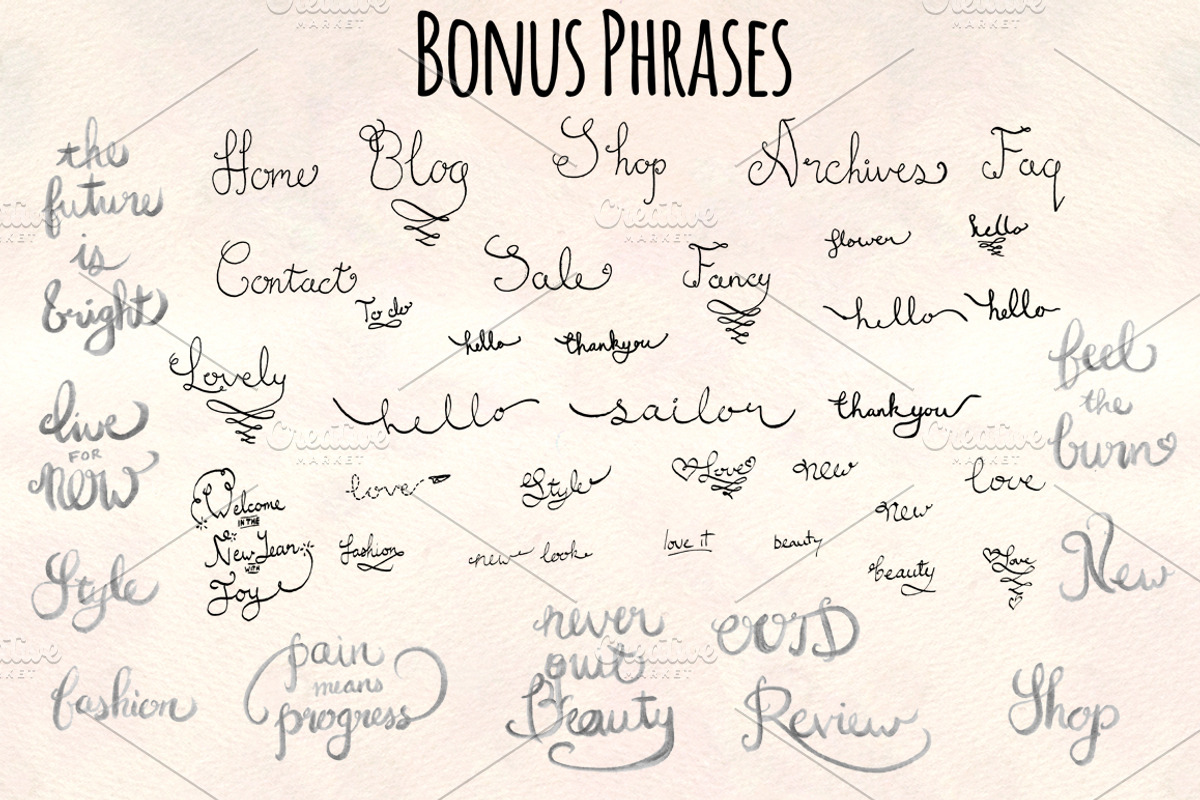 BONUS PHRASES
the
future
is
bright
Home
Blog
Shop
Archives
Faq
flower
hello
Contact
Sale
Fancy
To do
hello
thankyou
hello
hello
Lovely
hello
sailor
thankyou
feel
the
burn
live
FOR
new
Welcome
IN THE
New Year
WITH
Joy
love
Style
Love
new
love
new
fashion
new look
love it
beauty
beauty
Love
New
Style
never
quit
OOTD
pain
means
progress
fashion
Beauty
Review
Shop
Creative
MARKET